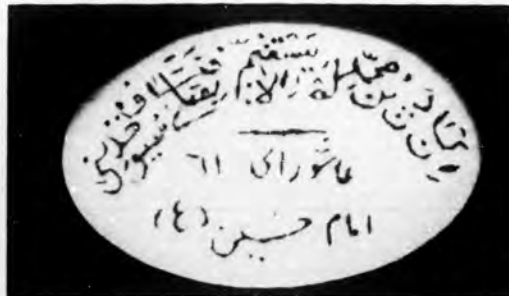 اِن كانَ دينُ مُحَمَّدٍ لَم يَستَقِم اِلّا بِقَتلي فَيا سُيوفُ خُذيني
عاشورای ٦١
امام حسین (ع)